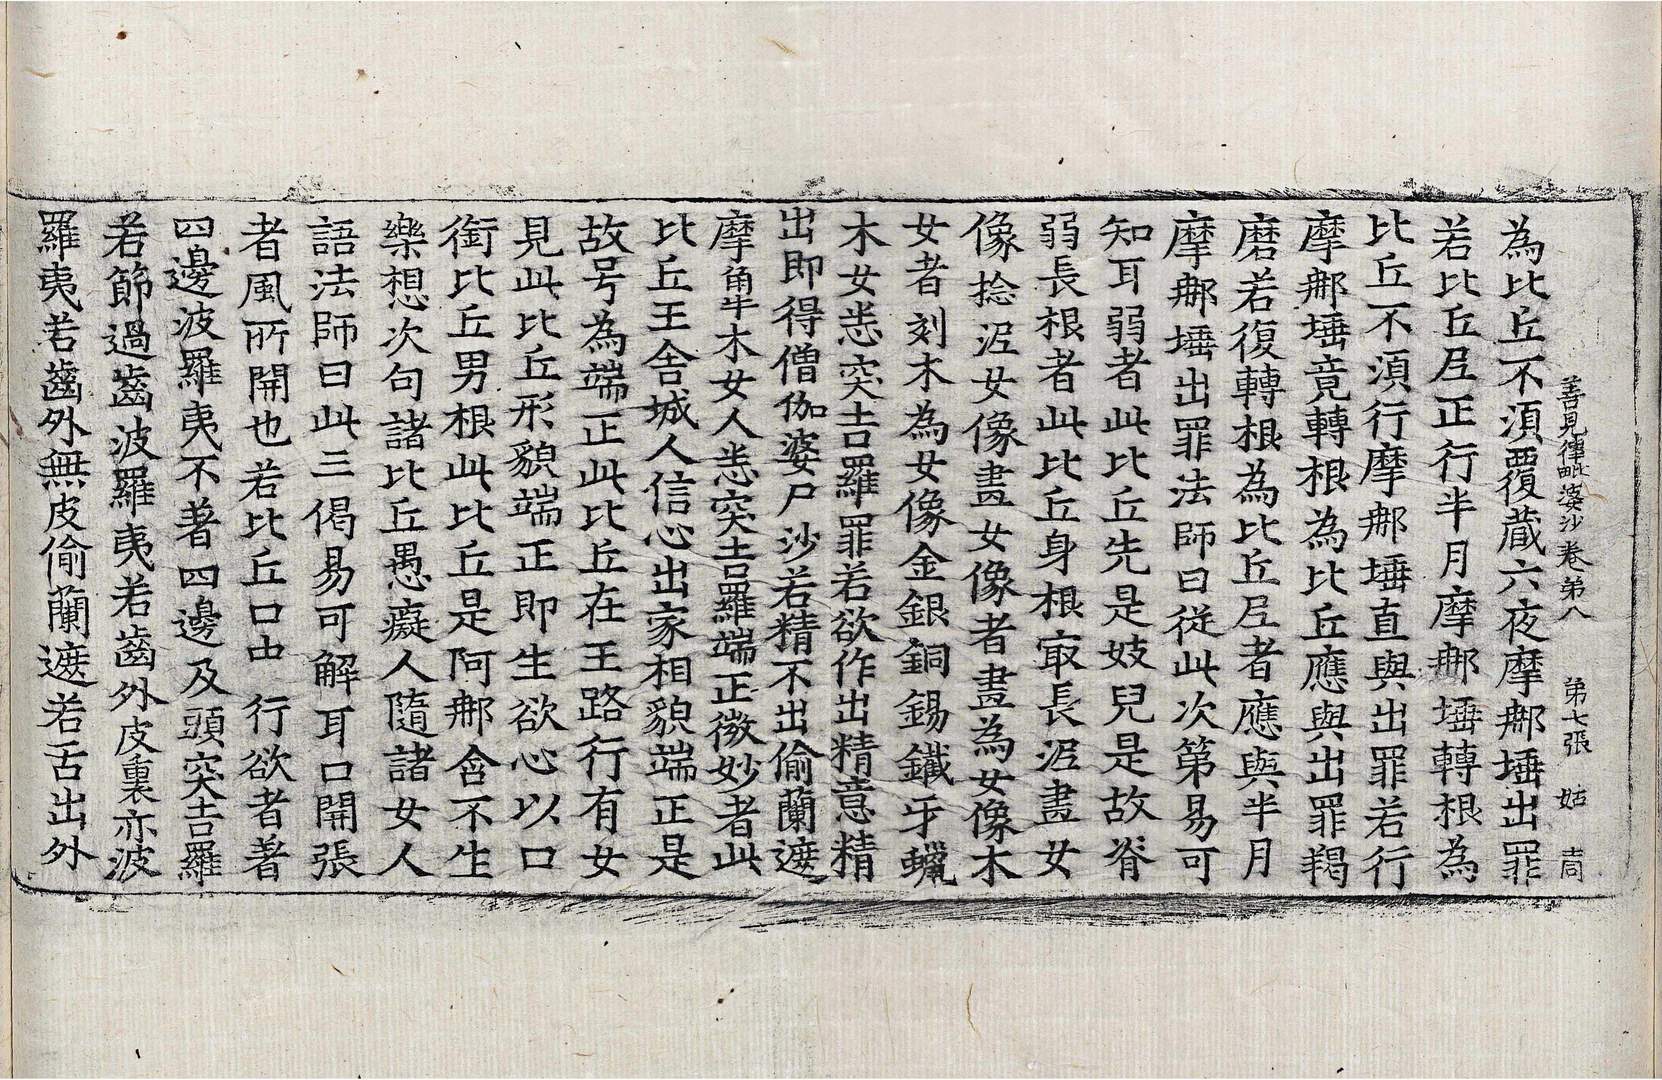 善見律毗婆沙卷弟八 弟七張 姑 㖯
為比丘不湏覆蔵六夜摩𨚗埵出罪
若比丘𡰱正行半月摩𨚗埵轉根為
比丘不湏行摩𨚗埵直與出罪若行
摩𨚗埵竟轉根為比丘應與出罪羯
磨若復轉根為比丘𡰱者應與半月
摩𨚗埵出罪法師曰従此次第易可
知耳弱者此比丘先是妓兒是故脊
弱長根者此比丘身根㝡長泥畫女
像捻泥女像畫女像者畫為女像木
女者刻木為女像金銀銅錫鐵牙蠟
木女悉突吉羅罪若欲作出精意精
出即得僧伽婆尸沙若精不出偷蘭遮
摩觸木女人悉突吉羅端正微妙者此
比丘王舍城人信心出家相貌端正是
故号為端正此比丘在王路行有女
見此比丘形貌端正即生欲心以口
銜比丘男根此比丘是阿𨚗含不生
樂想次句諸比丘愚癡人隨諸女人
語法師曰此三偈易可解耳口開張
者風所開也若比丘口中行欲者著
四邊波羅夷不著四邊及頭突吉羅
若節過齒波羅夷若齒外皮裏亦波
羅夷若齒外無皮偷蘭遮若舌出外